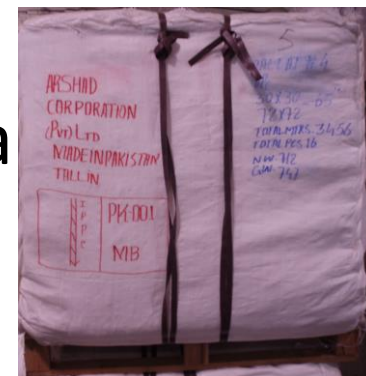 a
5
ARSHAD
CORPORATION
(Pvt) LTD
MADE IN PAKISTAN
TALLIN
IPPC
PK-001
MB
30X30
72X72
TOTAL MTRS. 3456
TOTAL PCS. 16
N.W. 712
G.W. 747